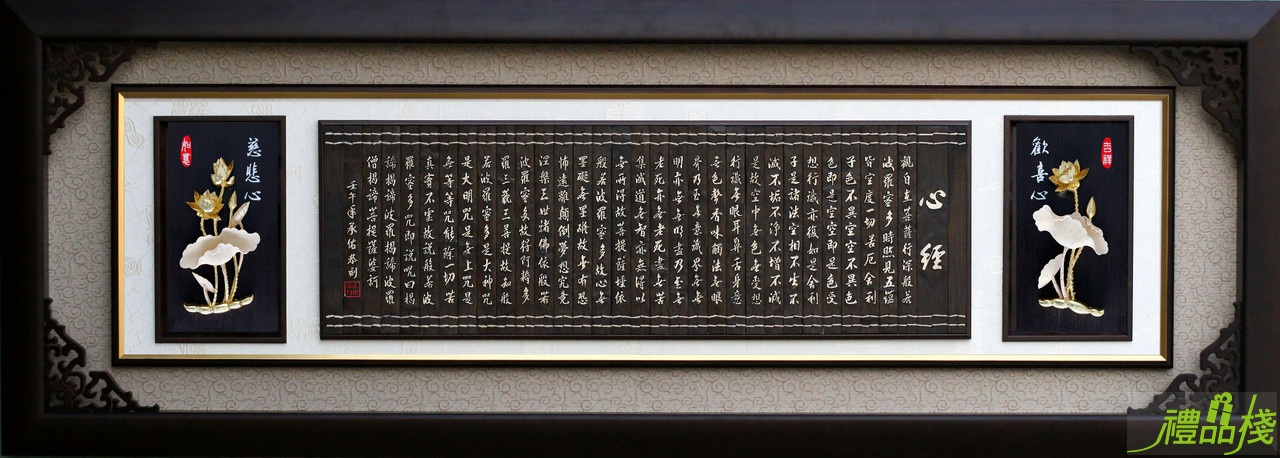 吉祥
歡喜心
心經
觀自在菩薩行深般若
波羅蜜多時照見五蘊
皆空度一切苦厄舍利
子色不異空空不異色
色即是空空即是色受
想行識亦復如是舍利
子是諸法空相不生不
滅不垢不淨不增不減
是故空中無色無受想
行識無眼耳鼻舌身意
無色聲香味觸法無眼
界乃至無意識界無無
明亦無無明盡乃至無
老死亦無老死盡無苦
集滅道無智亦無得以
無所得故菩提薩埵依
般若波羅蜜多故心無
罣礙無罣礙故無有恐
怖遠離顛倒夢想究竟
涅槃三世諸佛依般若
波羅蜜多故得阿耨多
羅三藐三菩提故知般
若波羅蜜多是大神咒
是大明咒是無上咒是
無等等咒能除一切苦
真實不虛故說般若波
羅蜜多咒即說咒曰揭
諦揭諦波羅揭諦波羅
僧揭諦菩提薩婆訶
壬午年承佑恭刻
慈悲心
如意
禮品棧